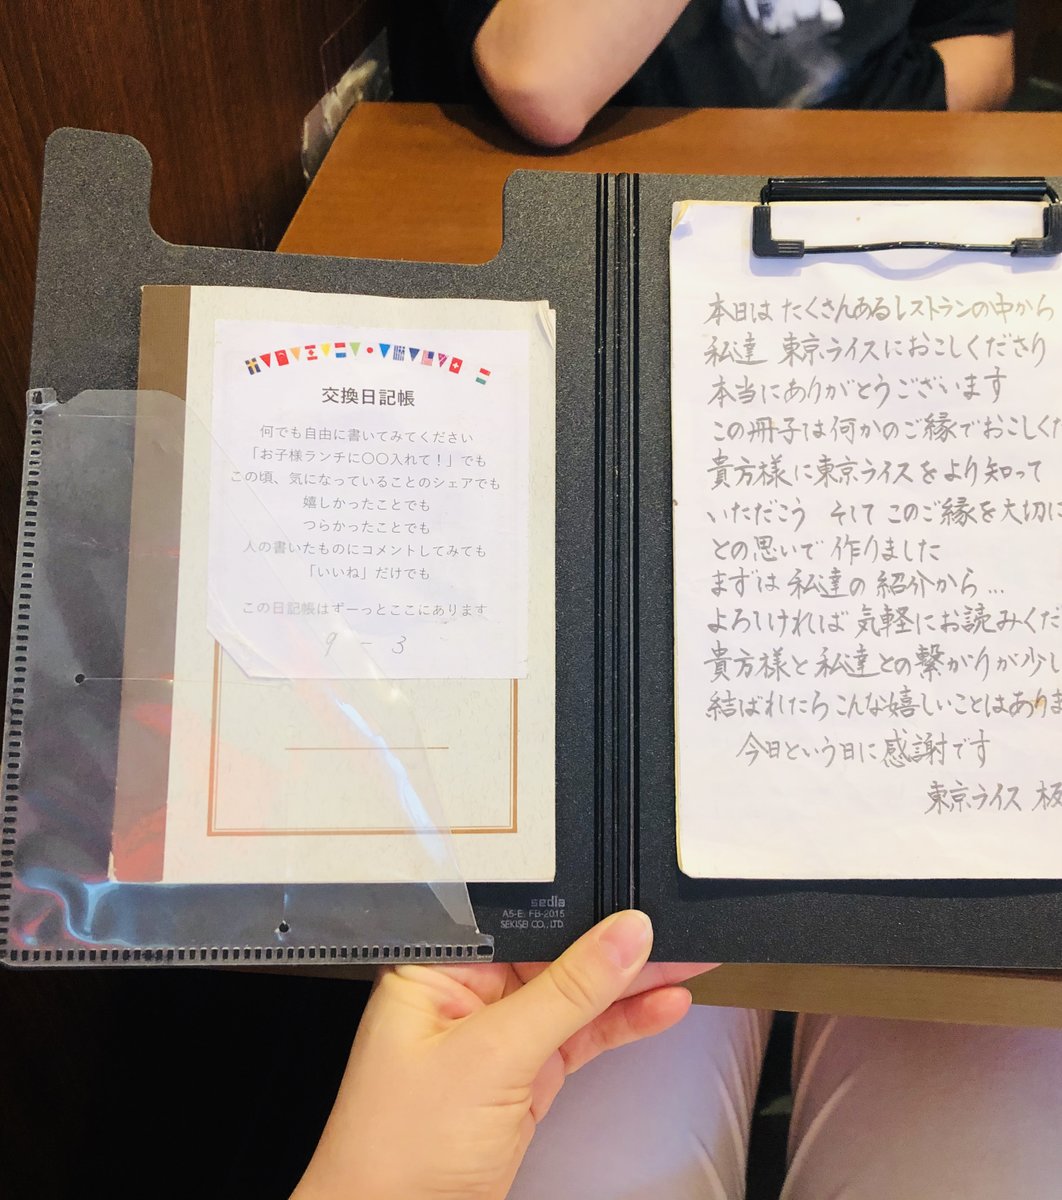 交換日記帳
何でも自由に書いてみてください
「お子様ランチに〇〇入れて！」でも
この頃、気になっていることのシェアでも
嬉しかったことでも
つらかったことでも
人の書いたものにコメントしてみても
「いいね」だけでも
この日記帳はずーっとここにあります
9 - 3
sedia
A5-E FB-2015
SEKISEI CO., LTD.
本日は たくさんあるレストランの中から
私達 東京ライスにおこしくださり
本当にありがとうございます
この冊子は何かのご縁でおこしくだ
貴方様に東京ライスをより知って
いただこう そして このご縁を大切に
との思いで 作りました
まずは 私達の 紹介から…
よろしければ 気軽にお読みくだ
貴方様と 私達との繋がりが少し
結ばれたら こんな嬉しいことはありま
今日という日に感謝です
東京ライス 板